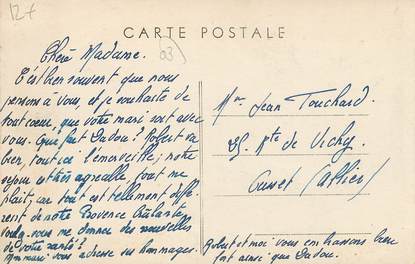 127
CARTE POSTALE
03
Chère Madame.
C'est bien souvent que nous
pensons à vous, et je souhaite de
tout cœur, que votre mari soit avec
vous. Que fait Dadou? Robert va
bien, tout ici l'émerveille; notre
séjour est très agréable, tout me
plait, car tout est tellement diffé-
rent de notre Provence brûlante
vous me donner des nouvelles
de votre santé?
mari vous adresse ses hommages.
Robert et moi vous embrassons bien
fort ainsi que Dadou.
Mme Jean Touchard.
35 Rte de Vichy
Cusset (Allier)